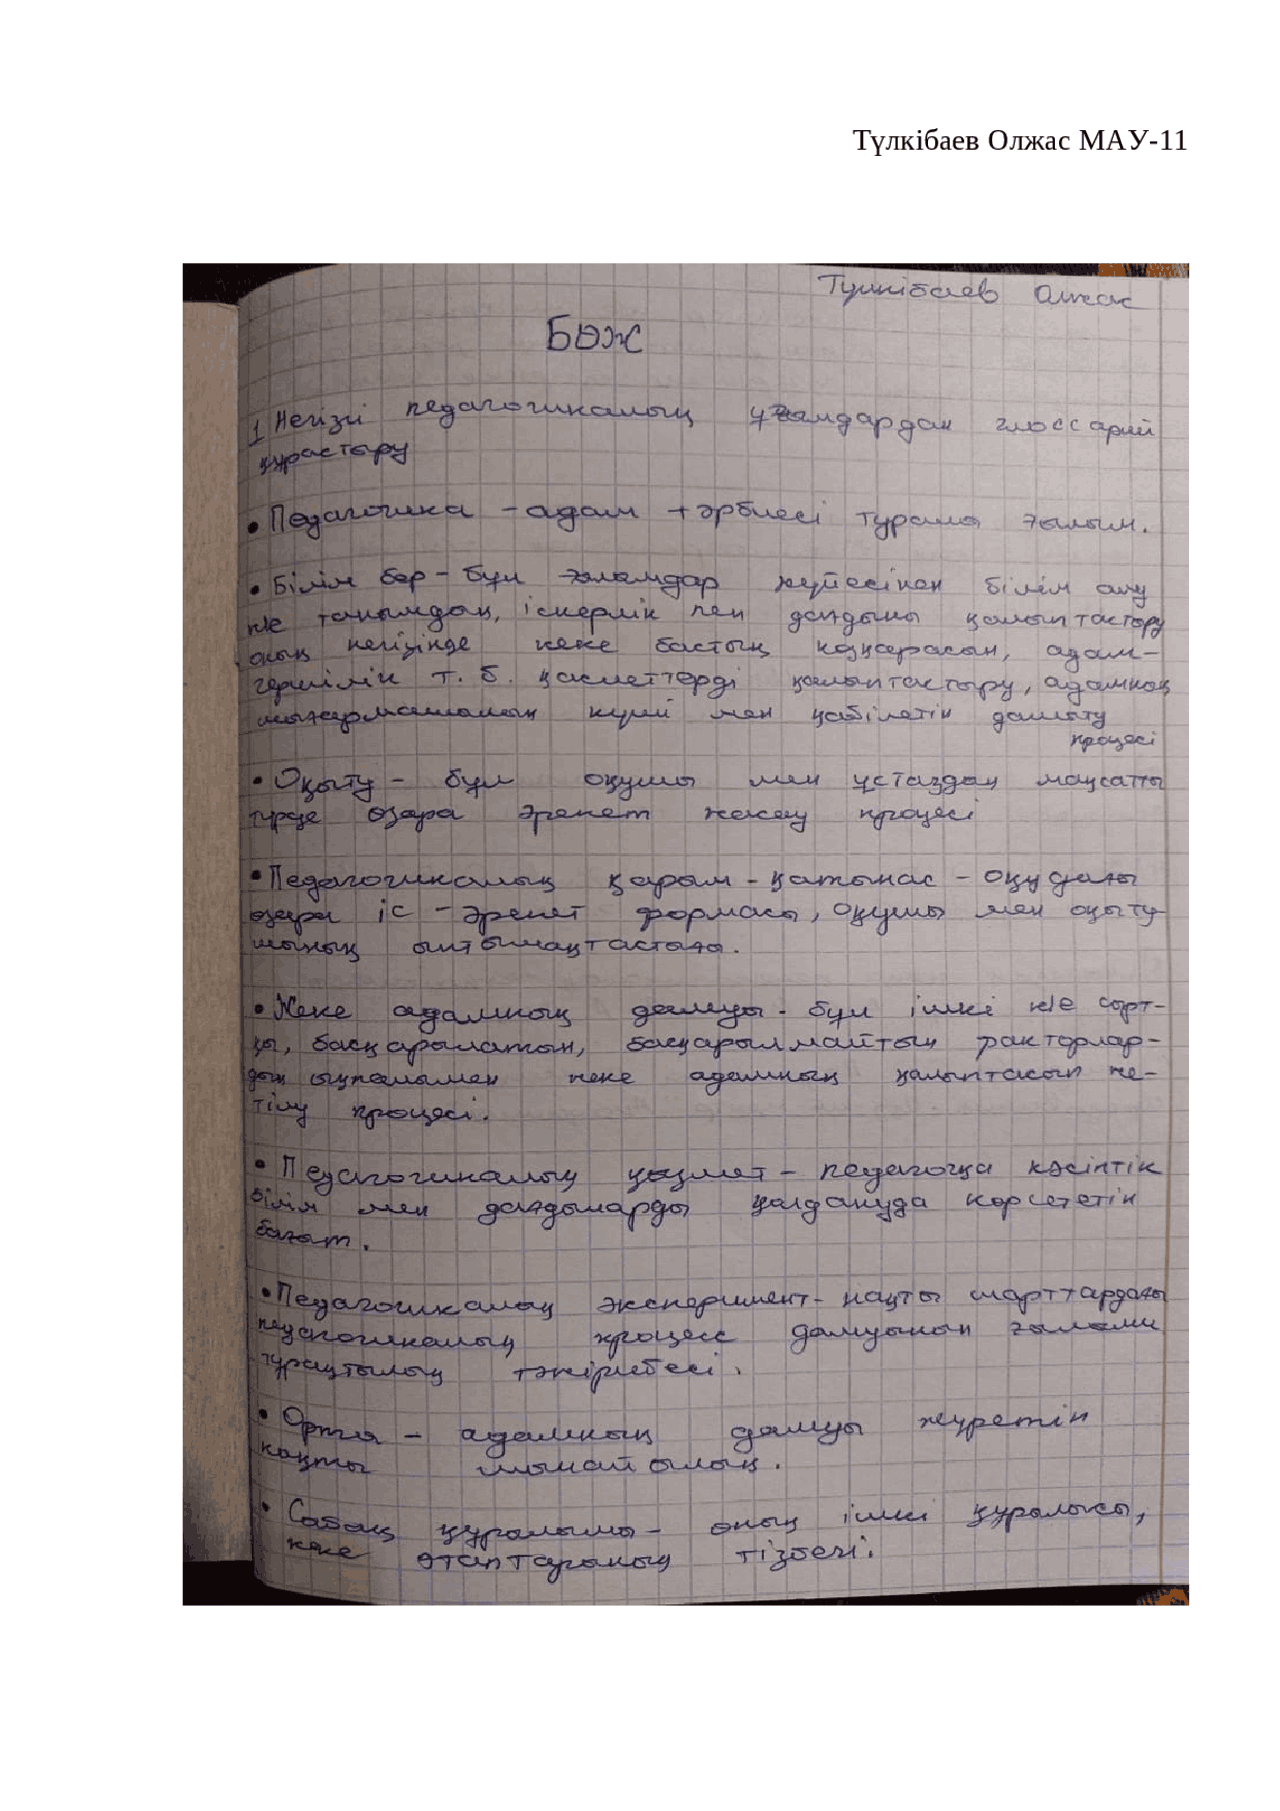 Түлкібаев Олжас МАУ-11
Түлкібаев Олжас
БӨЖ
1 Негізгі педагогикалық ұғымдардан глоссарий
құрастыру
• Педагогика - адам тәрбиесі туралы ғылым.
• Білім бер - бұл ғаламдар жүйесінен білім алу
ж/е танымдық, іскерлік пен дағдыны қалыптастыру
оның негізінде жеке бастың көзқарасын, адам-
гершілік т. б. қасиеттерді қалыптастыру, адамның
шығармашылық күші мен қабілетін дамыту
процесі
• Оқыту - бұл оқушы мен ұстаздың мақсатты
түрде өзара әрекет жасау процесі
• Педагогикалық қарым - қатынас - оқудағы
өзара іс - әрекет формасы, оқушы мен оқыту-
шының ынтымақтастығы.
• Жеке адамның дамуы - бұл ішкі ж/е сырт-
қы, басқарылатын, басқарылмайтын факторлар-
дың ықпалымен жеке адамның қалыптасып же-
тілу процесі.
• Педагогикалық қызмет - педагогқа кәсіптік
білім мен дағдыларды қолдануда көрсететін
бағыт.
• Педагогикалық эксперимент - нақты шарттардағы
педагогикалық процесс дамуынын ғылыми
тұрақтылық тәжірибесі.
• Орта - адамның дамуы жүретін
нақты шынайылық.
• Сабақ құрылымы - оның ішкі құрылысы,
жеке этаптарының тізбегі.